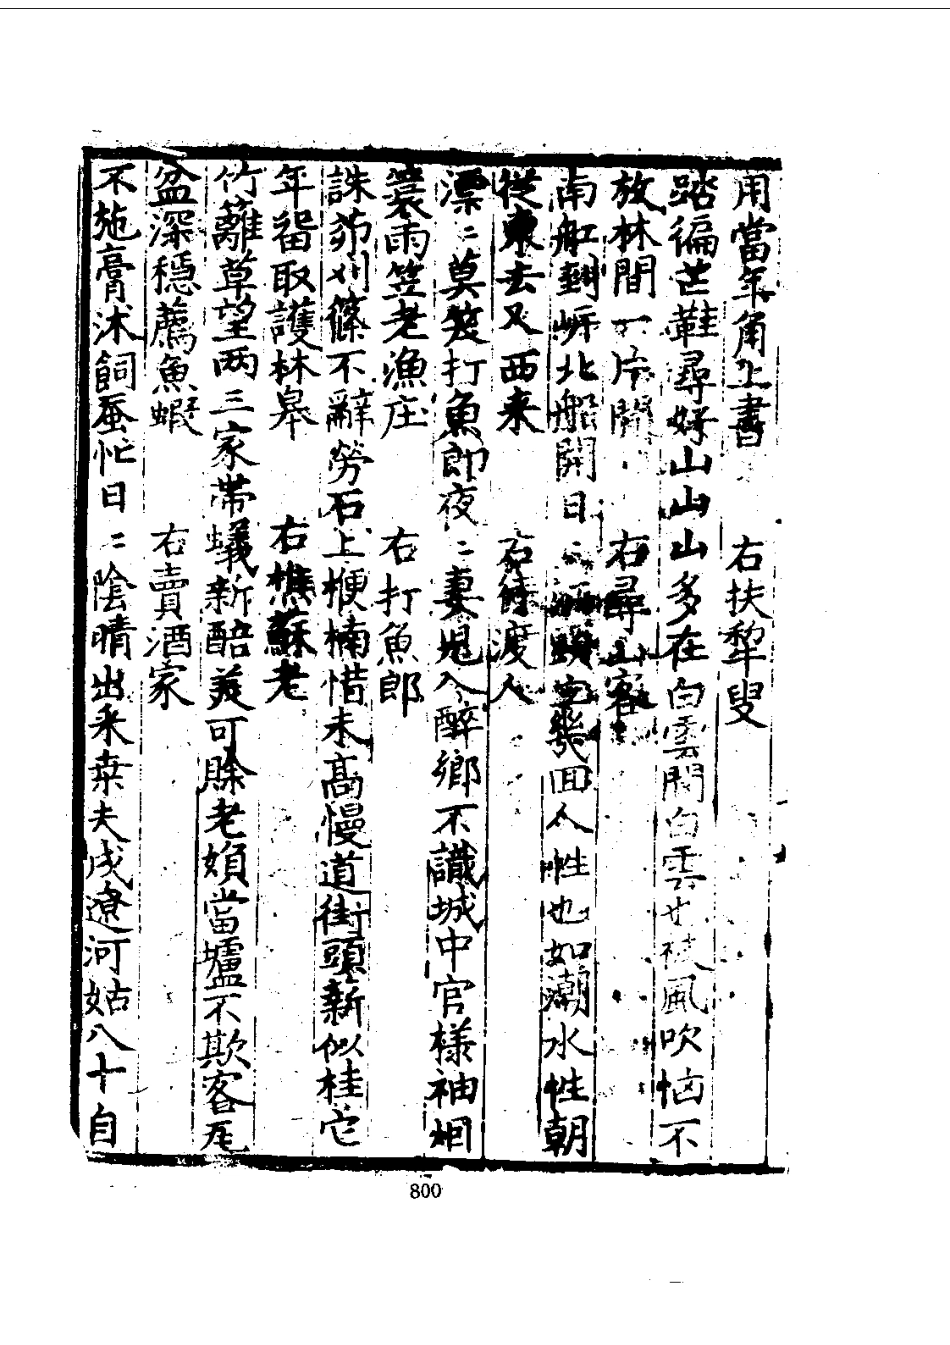 用當年角上書　右扶犂叟
踏徧芒鞋尋好山山山多在白雲閒白雲也被風吹恼不
放林間一片閒　右尋山客
南舡到岍北船開日〻頭幾回人性也如潮水性朝
從東去又西来　右待渡人
漂〻莫笑打魚郎夜〻妻児入醉鄉不識城中官様袖烟
簑雨笠老漁庄　右打魚郎
誅茆刈篠不辭勞石上楩楠惜未髙慢道街頭新似桂它
年留取護林皋　右樵蘇老
竹籬草望两三家帶蟻新醅羙可賒老媍當壚不欺客瓦
盆深穩薦魚蝦　右賣酒家
不施膏沐飼蚕忙日〻陰晴出采桒夫戍遼河姑八十自
800